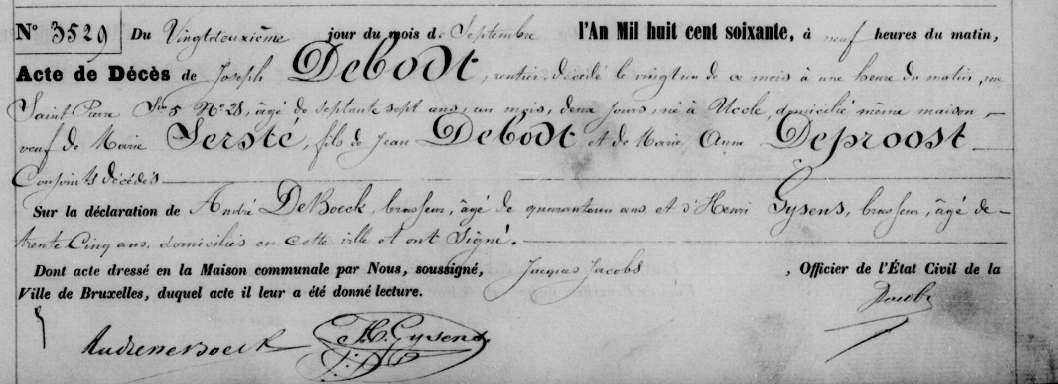 N° 3529 Du Vingtdeuxième jour du mois de Septembre l'An Mil huit cent soixante, à neuf heures du matin,
Acte de Décès de Joseph Debodt, rentier, décédé le vingtun de ce mois à une heure du matin, rue
Saint Pierre Son 5 N° 28, âgé de septante sept ans, un mois, deux jours, né à Uccle, domicilié même maison,
veuf de Marie Serste, fils de Jean Debodt et de Marie Anne Deproost
Conjoints décédés
Sur la déclaration de André DeBoeck, brasseur, âgé de quaranteun ans et d'Henri Gysens, brasseur, âgé de
trente cinq ans, domiciliés en cette ville et ont signé.
Dont acte dressé en la Maison communale par Nous, soussigné, Jacques Jacobs, Officier de l'État Civil de la
Ville de Bruxelles, duquel acte il leur a été donné lecture.
Jacobs
H. Gysens